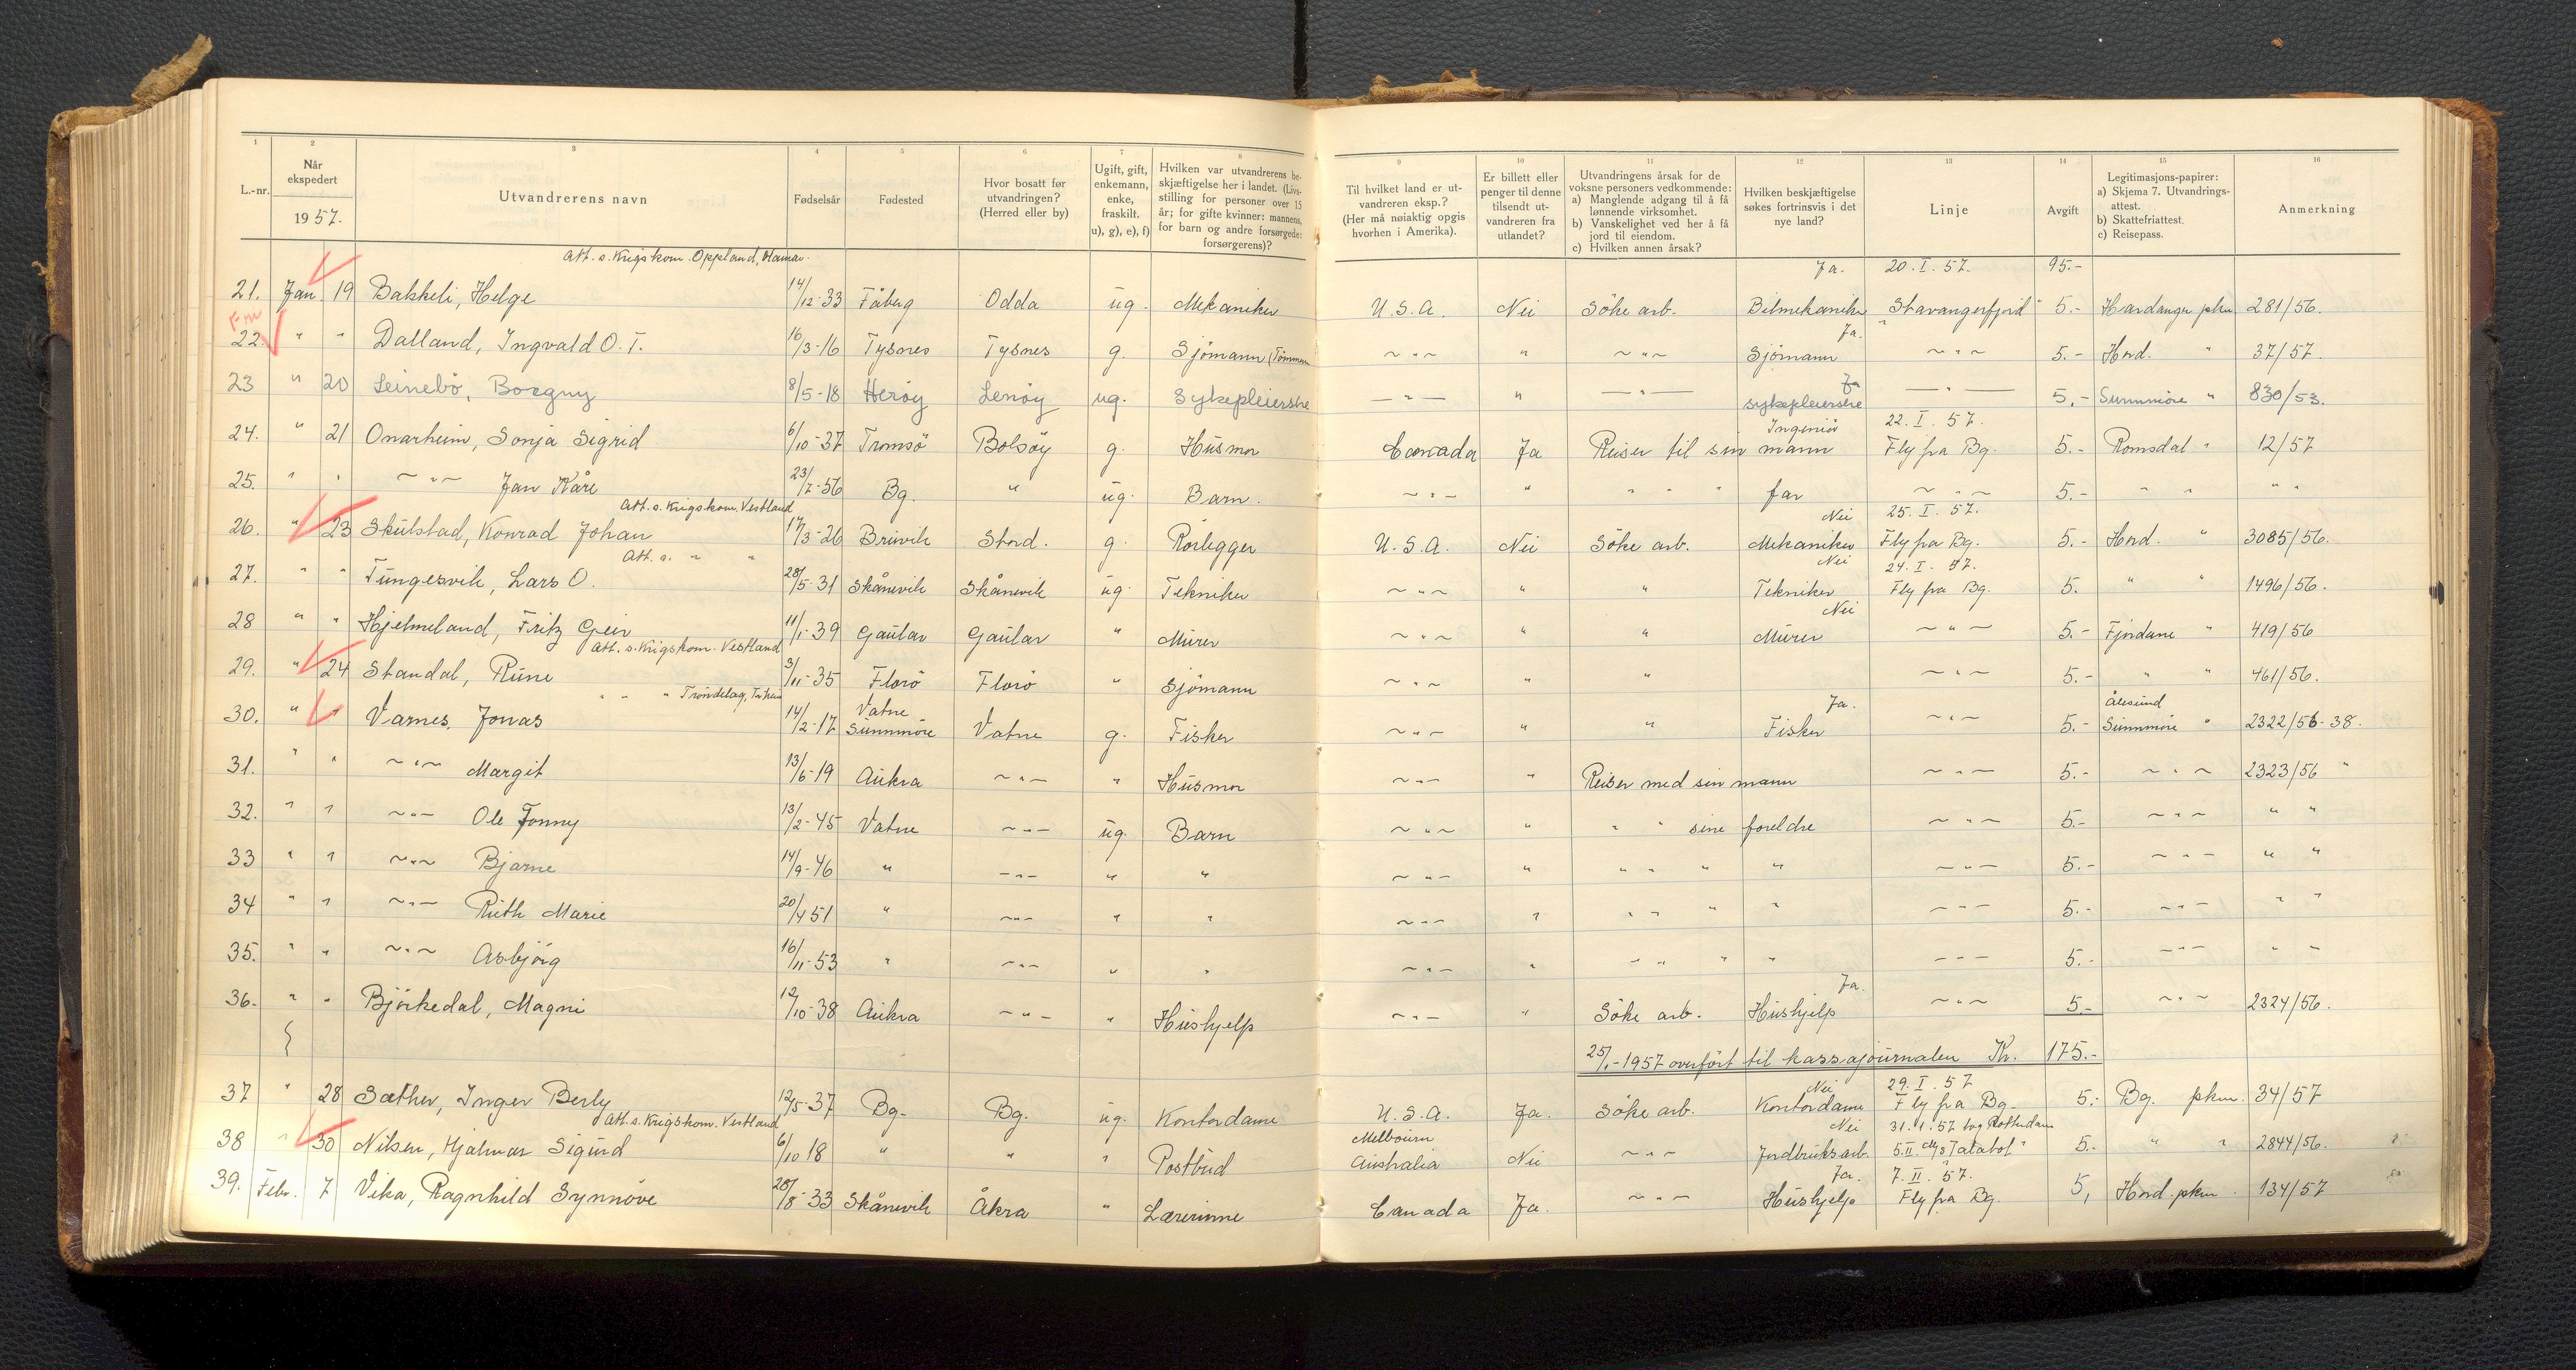 1 2 3 4 5 6 7 8 9 10 11 12 13 14 15 16
L.-nr. | Når ekspedert 1957. | Utvandrerens navn | Fødselsår | Fødested | Hvor bosatt før utvandringen? (Herred eller by) | Ugift, gift, enkemann, enke, fraskilt. u), g), e), f) | Hvilken var utvandrerens beskjæftigelse her i landet. (Livsstilling for personer over 15 år; for gifte kvinner: mannens, for barn og andre forsørgede: forsørgerens)? | Til hvilket land er utvandreren eksp.? (Her må nøiaktig opgis hvorhen i Amerika). | Er billett eller penger til denne tilsendt utvandreren fra utlandet? | Utvandringens årsak for de voksne personers vedkommende: a) Manglende adgang til å få lønnende virksomhet. b) Vanskelighet ved her å få jord til eiendom. c) Hvilken annen årsak? | Hvilken beskjæftigelse søkes fortrinsvis i det nye land? | Linje | Avgift | Legitimasjons-papirer: a) Skjema 7. Utvandringsattest. b) Skattefriattest. c) Reisepass. | Anmerkning
Att. s. Krigskom. Oppland, Hamar. Ja. 20.I.57. 95.-
21. Jan 19 Bakkeli, Helge 14/12-33 Fåberg Odda ug. Mekaniker U.S.A. Nei Söke arb. Bilmekaniker "Stavangerfjord" 5.- Hardanger pkm 281/56.
Fm Ja.
22. " " Dalland, Ingvald O. T. 16/3-16 Tysnes Tysnes g. Sjömann (Tömmerm ~"~ " ~"~ Sjömann ~"~ 5.- Hord. " 37/57.
Ja
23 " 20 Leinebö, Borgny 8/5-18 Heröy Leröy ug. Sykepleierske —"— " —"— sykepleierske —"— 5.- Sunnmöre " 830/53.
Ingeniör 22.I.57.
24. " 21 Onarheim, Sonja Sigrid 6/10-37 Tromsö Bolsöy g. Husmor Canada Ja Reiser til sin mann Fly fra Bg. 5.- Romsdal " 12/57
25. " " ~"~ Jan Kåre 23/7-56 Bg. " ug. Barn. ~"~ " " " " far ~"~ 5.- " " " "
Att. s. Krigskom. Vestland Nei 25.I.57.
26. " 23 Skulstad, Konrad Johan 17/3-26 Bruvik Stord. g. Rörlegger U.S.A. Nei Söke arb. Mekaniker Fly fra Bg. 5.- Hord. " 3085/56.
Att. s. " " Nei 24.I.57.
27. " " Tungesvik, Lars O. 28/5-31 Skånevik Skånevik ug. Tekniker ~"~ " " Tekniker Fly fra Bg. 5. " " 1496/56.
Nei
28 " " Hjelmeland, Fritz Geir 11/1-39 Gaular Gaular " Murer ~"~ " " Murer ~"~ 5.- Fjordane " 419/56
Att. s. Krigskom. Vestland
29. " 24 Standal, Rune 3/11-35 Florö Florö " Sjömann ~"~ " " ~"~ 5.- " " 461/56.
" " " Tröndelag, Tr.heim Vatne Ja. Ålesund
30. " " Varnes, Jonas 14/2-17 Sunnmöre Vatne g. Fisker ~"~ " " Fisker ~"~ 5.- Sunnmöre " 2322/56-38.
31. " " ~"~ Margit 13/6-19 Aukra ~"~ " Husmor ~"~ " Reiser med sin mann ~"~ 5.- ~"~ 2323/56 "
32. " " ~"~ Ole Jonny 13/2-45 Vatne ~"~ ug. Barn ~"~ " " " sine foreldre ~"~ 5.- ~"~ " "
33 " " ~"~ Bjarne 14/9-46 " ~"~ " " ~"~ " " " " " ~"~ 5.- ~"~ " "
34 " " ~"~ Ruth Marie 20/4 51 " ~"~ " " ~"~ " " " " " ~"~ 5.- ~"~ " "
35. " " ~"~ Asbjörg 16/11-53 " ~"~ " " ~"~ " " " " " ~"~ 5.- ~"~ " "
Ja.
36. " " Björkedal, Magni 12/10-38 Aukra ~"~ " Hushjelp ~"~ " Söke arb. Hushjelp ~"~ 5.- ~"~ 2324/56.
25/1-1957 overfört til kassajournalen Kr. 175.-
Nei 29.I.57
37 " 28 Sæther, Inger Berly 12/5-37 Bg. Bg. ug. Kontordame U.S.A. Ja. Söke arb. Kontordame Fly fra Bg. 5.- Bg. pkm. 34/57
Att. s. Krigskom. Vestland Melbourn Nei 31.1.57 tog Rotterdam
38 " 30 Nilsen, Hjalmar Sigurd 6/10 18 " " " Postbud Australia Nei ~"~ Jordbruksarb. 5.II. M/S "Talabot" 5.- " " 2844/56.
Ja. 7.II.57.
39. Febr. 7 Vika, Ragnhild Synnöve 28/8-33 Skånevik Åkra " Lærerinne Canada Ja. ~"~ Hushjelp Fly fra Bg. 5, Hord. pkm. 134/57